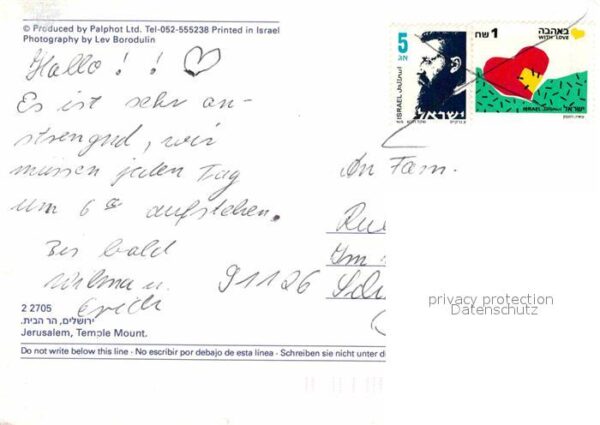 © Produced by Palphot Ltd. Tel-052-555238 Printed in Israel
Photography by Lev Borodulin
Hallo! ! ♡
Es ist sehr an-
strengend, wir
müssen jeden Tag
um 6 aufstehen.
Bis bald
Wilma u.
Erich
2 2705
ירושלים, הר הבית.
Jerusalem, Temple Mount.
Do not write below this line · No escribir por debajo de esta línea · Schreiben sie nicht unter d
5
אג
ISRAEL
ישראל
1 שח
באהבה
WITH LOVE
ISRAEL
ישראל
An Fam.
Im
91126
privacy protection
Datenschutz